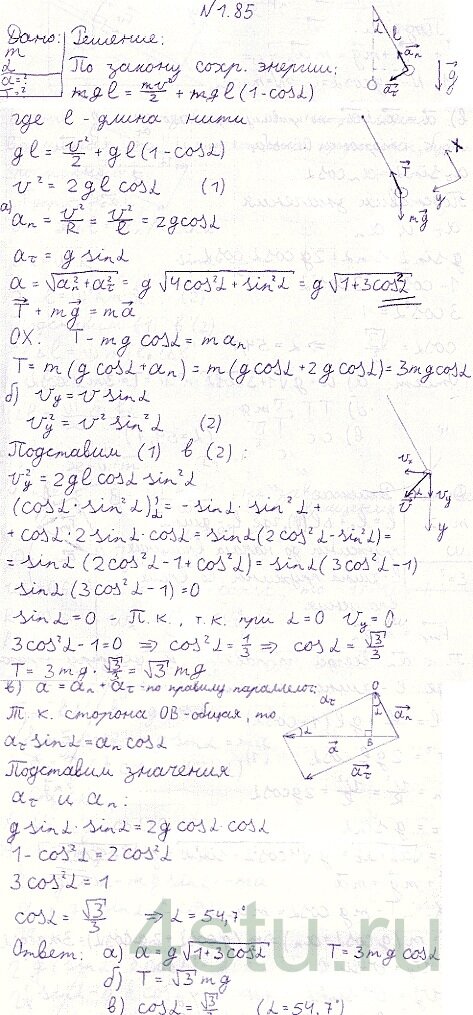 N 1.85
Дано: Решение:
m
α
a = ?
T = ?
По закону сохр. энергии:
mgl = mv²/2 + mgl(1-cosα)
где l - длина нити
gl = v²/2 + gl(1-cosα)
v² = 2gl cosα (1)
а)
aₙ = v²/R = v²/l = 2g cosα
a_τ = g sinα
a = √(aₙ² + a_τ²) = g √(4cos²α + sin²α) = g √(1+3cos²α)
T⃗ + mg⃗ = ma⃗
OX: T - mg cosα = maₙ
T = m(g cosα + aₙ) = m(g cosα + 2g cosα) = 3mg cosα
б) v_y = v sinα
v_y² = v² sin²α (2)
Подставим (1) в (2):
v_y² = 2gl cosα sin²α
(cosα · sin²α)'_α = -sinα · sin²α +
+ cosα · 2 sinα · cosα = sinα(2cos²α - sin²α) =
= sinα(2cos²α - 1 + cos²α) = sinα(3cos²α - 1)
sinα(3cos²α - 1) = 0
sinα = 0 - П.к., т.к. при α = 0 v_y = 0
3cos²α - 1 = 0 ⇒ cos²α = 1/3 ⇒ cosα = √3/3
T = 3mg · √3/3 = √3 mg
в) a⃗ = a⃗ₙ + a⃗_τ - по правилу параллелог.
Т.к. сторона OB - общая, то
a_τ sinα = aₙ cosα
Подставим значения
a_τ и aₙ:
g sinα · sinα = 2g cosα · cosα
1 - cos²α = 2cos²α
3cos²α = 1
cosα = √3/3 ⇒ α = 54,7°
Ответ: а) a = g√(1+3cos²α) T = 3mg cosα
б) T = √3 mg
в) cosα = √3/3 (α = 54,7°)
4stu.ru
α
l
a⃗ₙ
a⃗_τ
g⃗
T⃗
x
y
mg⃗
vₓ
v_y
v⃗
α
y
O
a_τ
α
a⃗ₙ
α
a⃗
B
a⃗_τ